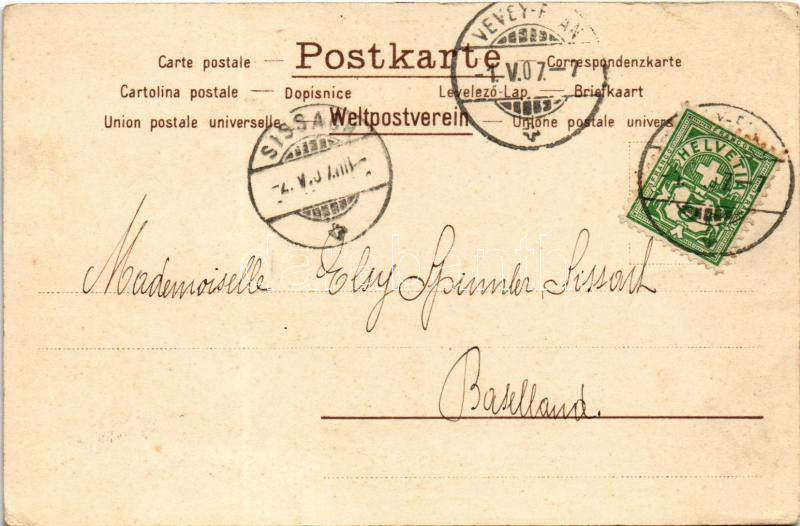 Carte postale — Postkarte — Correspondenzkarte
Cartolina postale — Dopisnice Levelező-Lap — Briefkaart
Union postale universelle — Weltpostverein — Unione postale univers
VEVEY-
-1.V.07.-7
SISSACH
-2.V.07.
HELVETIA
Mademoiselle Elsy Spinnler, Sissach
Baselland.
darabanth